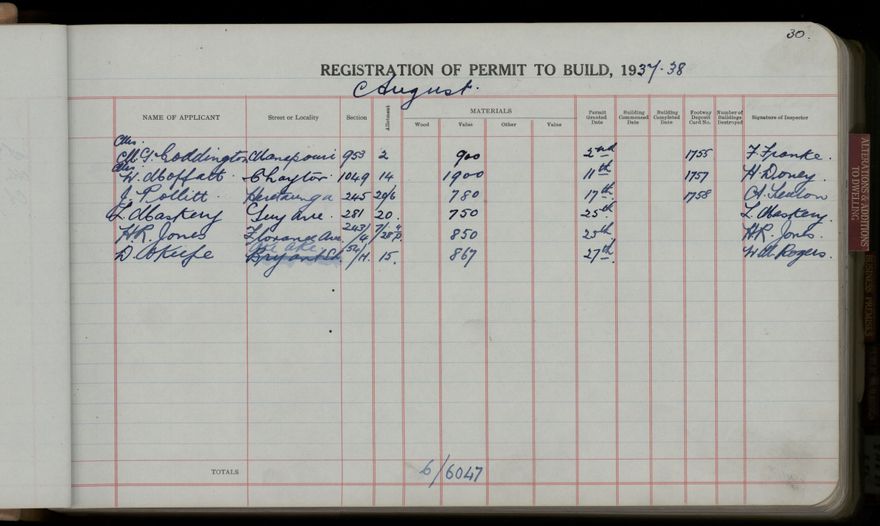 30.
REGISTRATION OF PERMIT TO BUILD, 1937-38
August.
NAME OF APPLICANT Street or Locality Section Allotment MATERIALS Wood Value Other Value Permit Granted Date Building Commenced Date Building Completed Date Footway Deposit Card No. Number of Buildings Destroyed Signature of Inspector
Mrs.
M. G. Goddington Manapouri 953 2 900 2nd 1755 F. Franke.
Mrs.
W. Moffatt Chayton 1049 14 1900 11th 1757 H. Doney.
J. Pollitt Heretaunga 245 20/6 780 17th 1758 A. Seaton
L. Maskery Guy Ave. 281 20. 750 25th L. Maskery.
H. R. Jones Florance Ave. 243/4 7/28 850 25th H. R. Jones.
D. O'Keefe Bryant St. 52/H. 15. 867 27th W. A. Rogers.
TOTALS 6/6047
ALTERATIONS & ADDITIONS
TO DWELLING